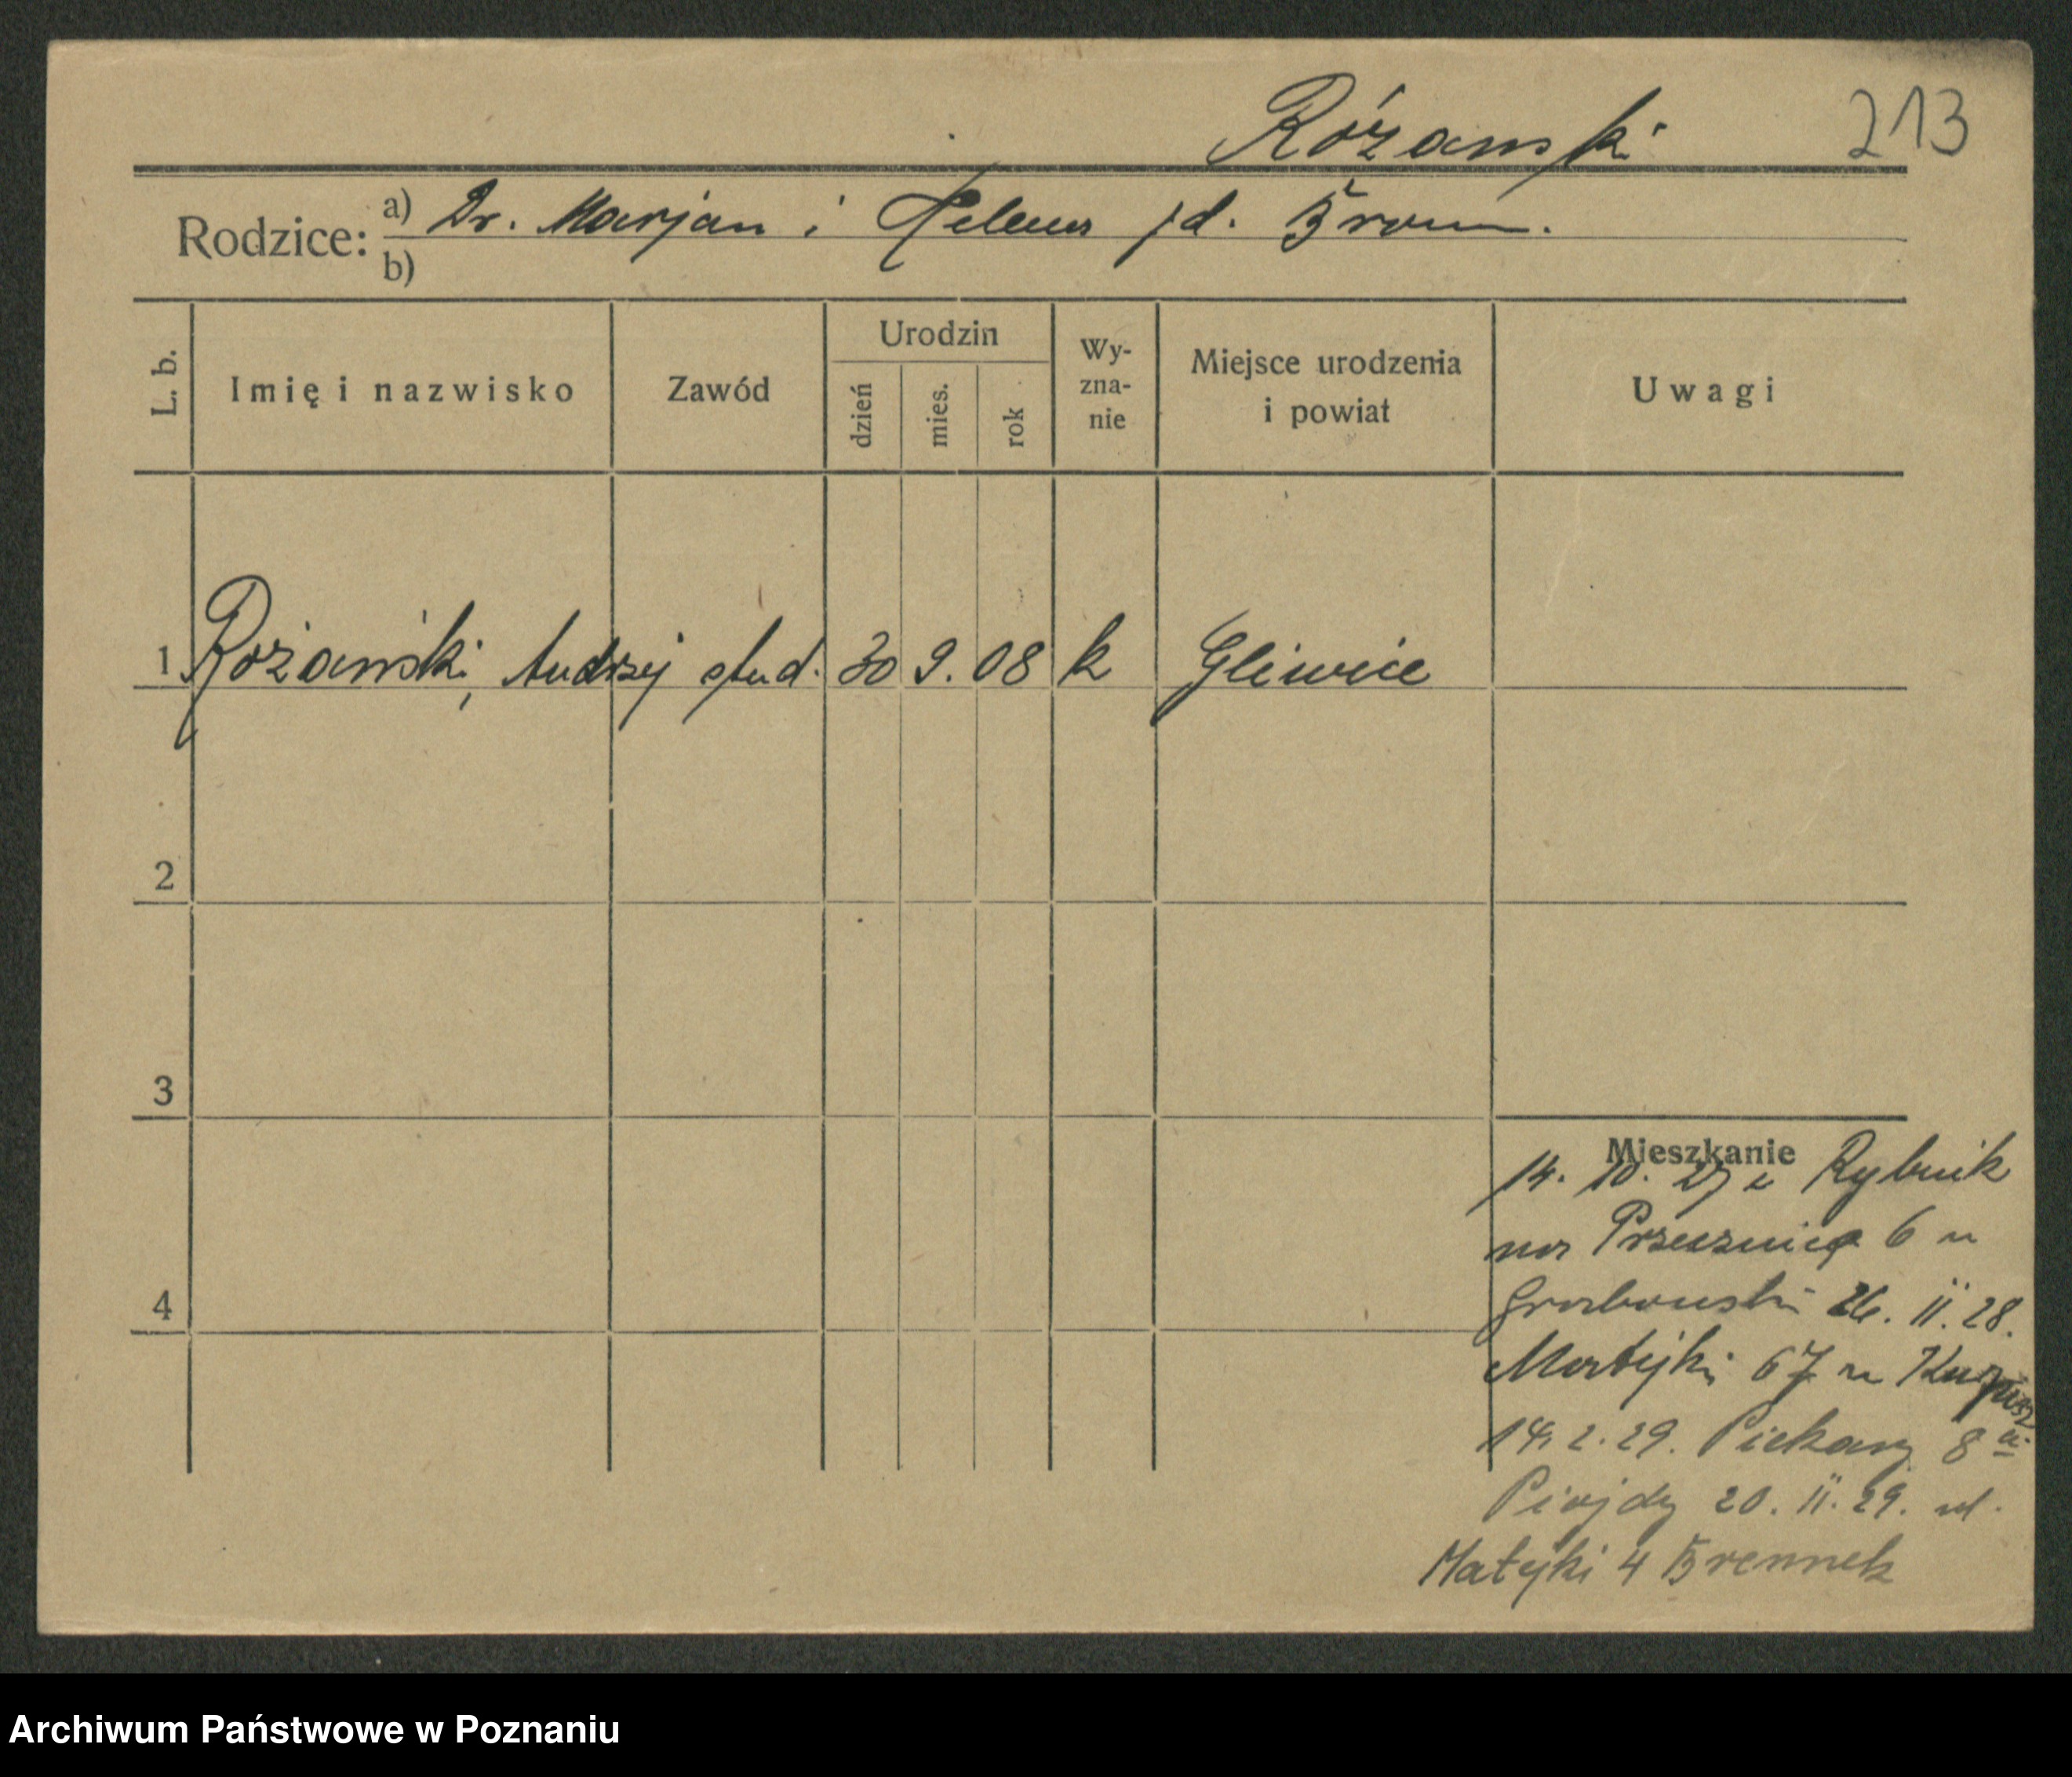 Różański 213
Rodzice: a) Dr. Marjan i Helena
b)
L. b. Imię i nazwisko Zawód Urodzin dzień mies. rok Wy-zna-nie Miejsce urodzenia i powiat Uwagi
1 Różański, Andrzej stud. 30 9. 08 k Gliwice
2
3
4
Mieszkanie
14. 10. 27 z Rybnik
na 6 u
Grabowski 26. II. 28.
Matejki 67 u
14. 2. 29. Piekary 8 u.
20. II. 29. ul.
Matejki 4 Brennek
Archiwum Państwowe w Poznaniu